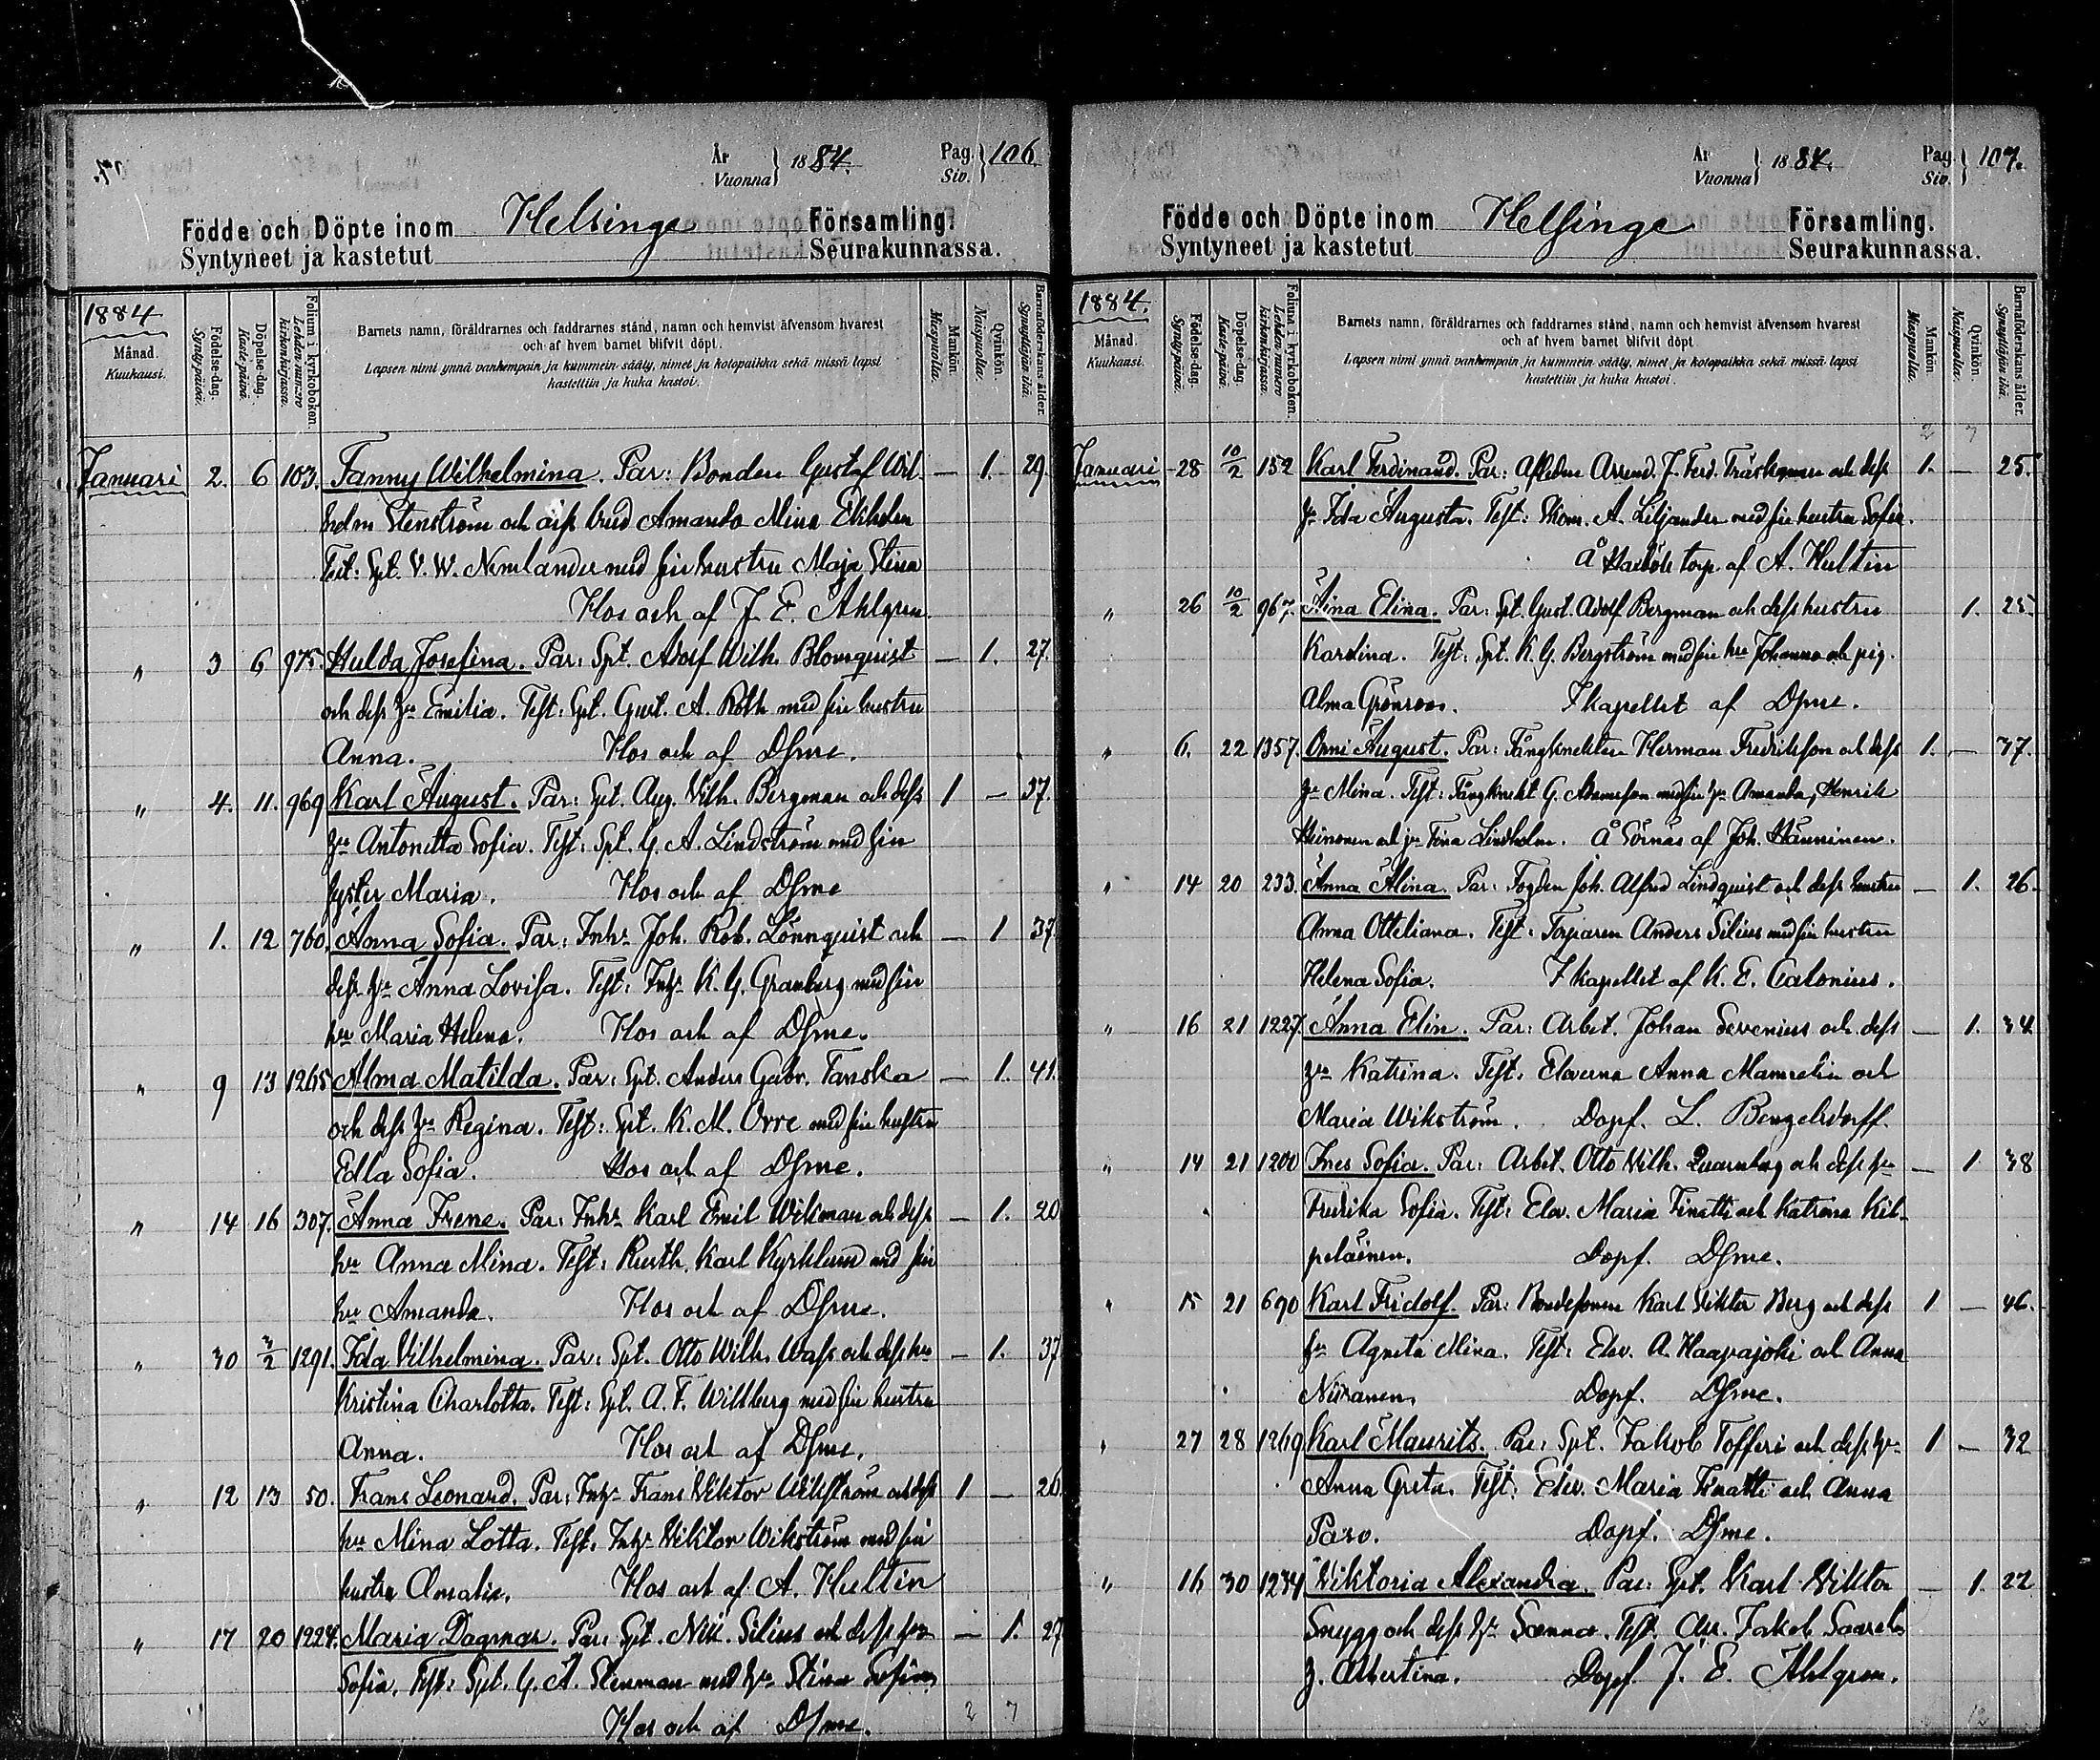 År
Vuonna } 1884.
Pag.
Siv. } 106
Födde och Döpte inom Helsinge Församling.
Syntyneet ja kastetut Seurakunnassa.
1884
Månad.
Kuukausi.
Födelse-dag.
Syntypäivä.
Döpelse-dag.
Kastepäivä.
Folium i kyrkoboken.
Lehden numero kirkonkirjassa.
Barnets namn, föräldrarnes och faddrarnes stånd, namn och hemvist äfvensom hvarest
och af hvem barnet blifvit döpt.
Lapsen nimi ynnä vanhempain ja kummein sääty, nimet ja kotopaikka sekä missä lapsi
kastettiin ja kuka kastoi.
Mankön.
Miespuolia.
Qvinkön.
Naispuolia.
Barnaföderskans ålder.
Synnyttäjän ikä.
Januari 2. 6 103. Fanny Wilhelmina. Par: Bonden Gustaf Wil- — 1. 29
helm Stenström och Amanda Mina Ekholm
Test: Spt. V. W. Nymlander med sin hustru Maja Stina
Hos och af J. E. Ahlgren.
" 3 6 975. Hulda Josefina. Par: Spt. Adolf Wilh. Blomquist — 1. 27.
och dess hu Emilia. Test: Spt. Gust. A. Roth med sin hustru
Anna. Hos och af Dsme.
" 4. 11. 969 Karl August. Par: Spt. Aug. Wilh. Bergman och dess 1 — 37.
hu Antonetta Sofia. Test: Spt. G. A. Lindström med sin
syster Maria. Hos och af Dsme
" 1. 12 760. Anna Sofia. Par: Inhs Joh. Rob. Lönnquist och — 1 37
dess hu Anna Lovisa. Test: Inhs K. G. Granberg med sin
hu Maria Helena. Hos och af Dsme.
" 9 13 1265 Alma Matilda. Par: Spt. Anders Gabr. Tanska — 1. 41.
och dess hu Regina. Test: Spt. K. M. Orre med sin hustru
Edla Sofia. Hos och af Dsme.
" 14 16 307. Anna Irene. Par: Inhs Karl Emil Wikman och dess — 1. 20
hu Anna Mina. Test: Karl Kyrklund med sin
hu Amanda. Hos och af Dsme.
" 30 3/2 1291. Ida Vilhelmina. Par: Spt. Otto Wilh. Wass och dess hu — 1. 37
Kristina Charlotta. Test: Spt. A. F. Willberg med sin hustru
Anna. Hos och af Dsme.
" 12 13 50. Frans Leonard. Par: Inhs Frans Viktor Wikström och dess 1 — 26
hu Mina Lotta. Test: Inhs Viktor Wikström med sin
hustru Amalia. Hos och af A. Hultin
" 17 20 1224. Maria Dagmar. Par: Spt. Nils Silius och dess hu — 1. 27
Sofia. Test: Spt. G. A. Stenman med hu Stina Sofia
Hos och af Dsme. 2 7
År
Vuonna } 1884.
Pag.
Siv. } 107.
Födde och Döpte inom Helsinge Församling.
Syntyneet ja kastetut Seurakunnassa.
1884.
Månad.
Kuukausi.
Födelse-dag.
Syntypäivä.
Döpelse-dag.
Kastepäivä.
Folium i kyrkoboken.
Lehden numero kirkonkirjassa.
Barnets namn, föräldrarnes och faddrarnes stånd, namn och hemvist äfvensom hvarest
och af hvem barnet blifvit döpt.
Lapsen nimi ynnä vanhempain ja kummein sääty, nimet ja kotopaikka sekä missä lapsi
kastettiin ja kuka kastoi.
Mankön.
Miespuolia.
Qvinkön.
Naispuolia.
Barnaföderskans ålder.
Synnyttäjän ikä.
2 7
Januari 28 10/2 152 Karl Ferdinand. Par: Aflidne Arrend. J. Ferd. Träskman och dess 1. — 25.
hu Ida Augusta. Test: Skom. A. Liljander med sin hustru Sofia.
Å torp af A. Hultin
" 26 10/2 967. Aina Elina. Par: Spt. Gust. Adolf Bergman och dess hustru 1. 25
Karolina. Test: Spt. K. G. Bergström med sin hu Johanna och pig.
Alma Grönroos. I kapellet af Dsme.
" 6. 22 1357. Onni August. Par: Fångknekten Herman Fredriksson och dess 1. — 37.
hu Mina. Test: Fångknekt G. Adamsson med sin hu Amanda, Henrik
Heinonen och jn Fina Lindholm. Å Sörnäs af Joh. Hänninen.
" 14 20 233. Anna Alina. Par: Fogden Joh. Alfred Lindquist och dess hustru — 1. 26.
Anna Otteliana. Test: Torparen Anders Silius med sin hustru
Helena Sofia. I kapellet af K. E. Calonius.
" 16 21 1227. Anna Elin. Par: Arbet. Johan Sevenius och dess — 1. 34
hu Katrina. Test: Eleverna Anna Mamrelin och
Maria Wikström. Dopf. L. Bengelsdorff.
" 14 21 1200 Ines Sofia. Par: Arbet. Otto Wilh. Quarnberg och dess hu — 1 38
Fredrika Sofia. Test: Elev. Maria Finatti och Katrina Kil-
peläinen. Dopf. Dsme.
" 15 21 690 Karl Fridolf. Par: Bondesonen Karl Viktor Berg och dess 1 — 46.
hu Agneta Mina. Test: Elev. A. Haapajoki och Anna
Niiranen. Dopf. Dsme.
" 27 28 1269 Karl Mauritz. Par: Spt. Jakob Tofferi och dess hu 1 — 32
Anna Greta. Test: Elev. Maria Finatti och Anna
Parv. Dopf. Dsme.
" 16 30 1234 Viktoria Alexandra. Par: Spt. Karl Viktor — 1. 22
Snygg och dess hu Sanna. Test. Jakob
h. Albertina. Dopf. J. E. Ahlgren.
12